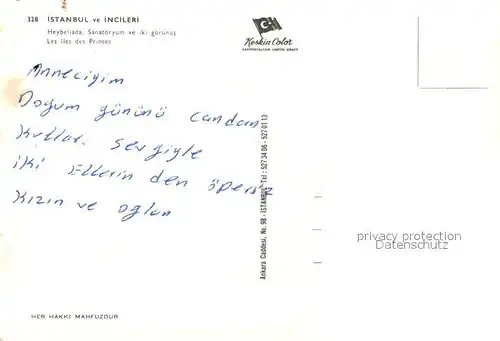 328 İSTANBUL ve İNCİLERİ
Heybeliada, Sanatoryum ve iki görünüş
Les îles des Princes
Keskin Color
KARTPOSTALCILIK LİMİTED ŞİRKETİ
Anneciyim
Doğum gününü candan
Kutlar. Sevgiyle
iki Ellerin den öperiz
Kızın ve oğlan
Ankara Caddesi, No. 98 - İSTANBUL - Tel : 527 34 06 - 527 01 13
privacy protection
Datenschutz
HER HAKKI MAHFUZDUR